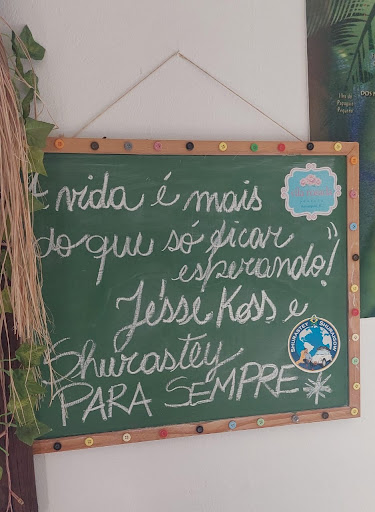 A vida é mais
do que só ficar
esperando!"
Jésse Koss e
Shurastey
PARA SEMPRE
SHURASTEY